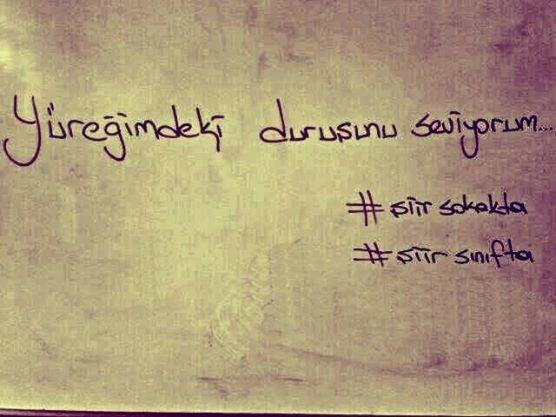 Yüreğimdeki duruşunu seviyorum...
# şiir sokakta
# şiir sınıfta